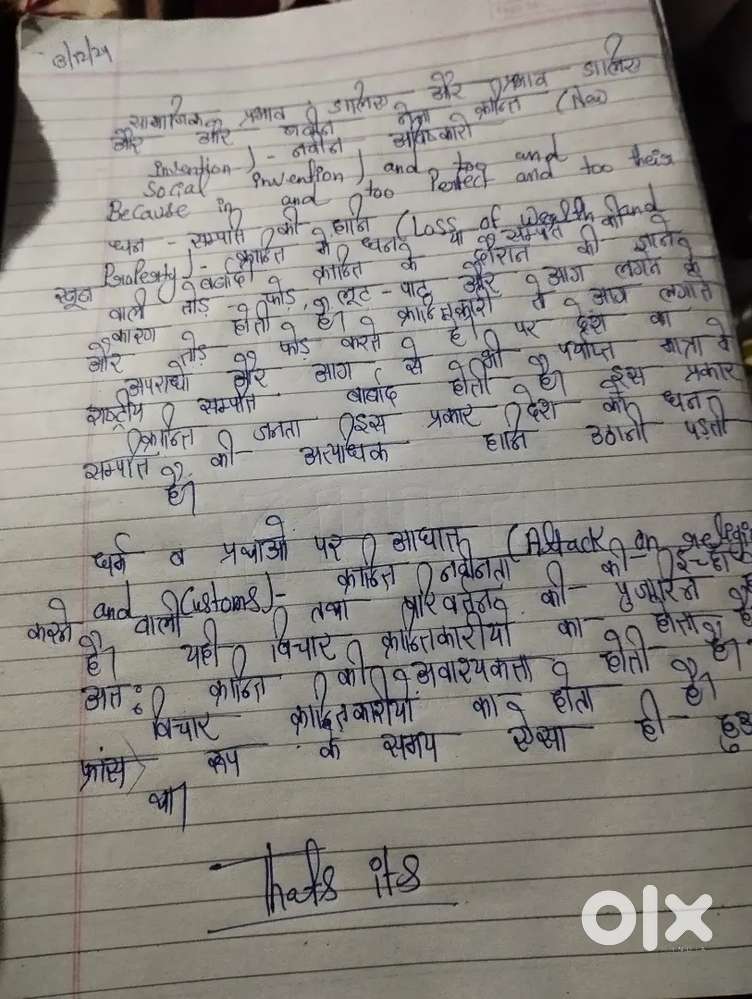 3/12/24
सामाजिक प्रभाव और प्रभाव
और और नवीन क्रान्ति (New
Invention) - नवीन आविष्कारो
Social Invention) and too and
Because in and too Perfect and too their
धन - सम्पत्ति की हानि (Loss of Wealth and
Property) - क्रान्ति में धन या सम्पत्ति की
खूब बर्बादी क्रान्ति के दौरान की जाने
वाली तोड़ - फोड़, लूट - पाट और आग लगने के
कारण होती है। क्रान्तिकारी तो आग लगाते
और तोड़ फोड़ करते है। पर देश का
अपराधो और आग से भी पर्याप्त मात्रा मे
राष्ट्रीय सम्पत्ति बर्बाद होती है। इस प्रकार
क्रान्ति जनता इस प्रकार देश को धन
सम्पत्ति की अत्याधिक हानि उठानी पड़ती
है।
धर्म व प्रथाओ पर आघात (Attack on religion
and Customs) - क्रान्ति नवीनता की इच्छा
करने वाली तथा परिवर्तन की पुजारिन
है। यही विचार क्रान्तिकारीयो का होता है
अतः क्रान्ति की आवश्यकता होती है।
विचार क्रान्तिकारीयो का होता है।
फ्रांस रूप के समय ऐसा ही हुआ
था।
Thats its
olx
INDIA